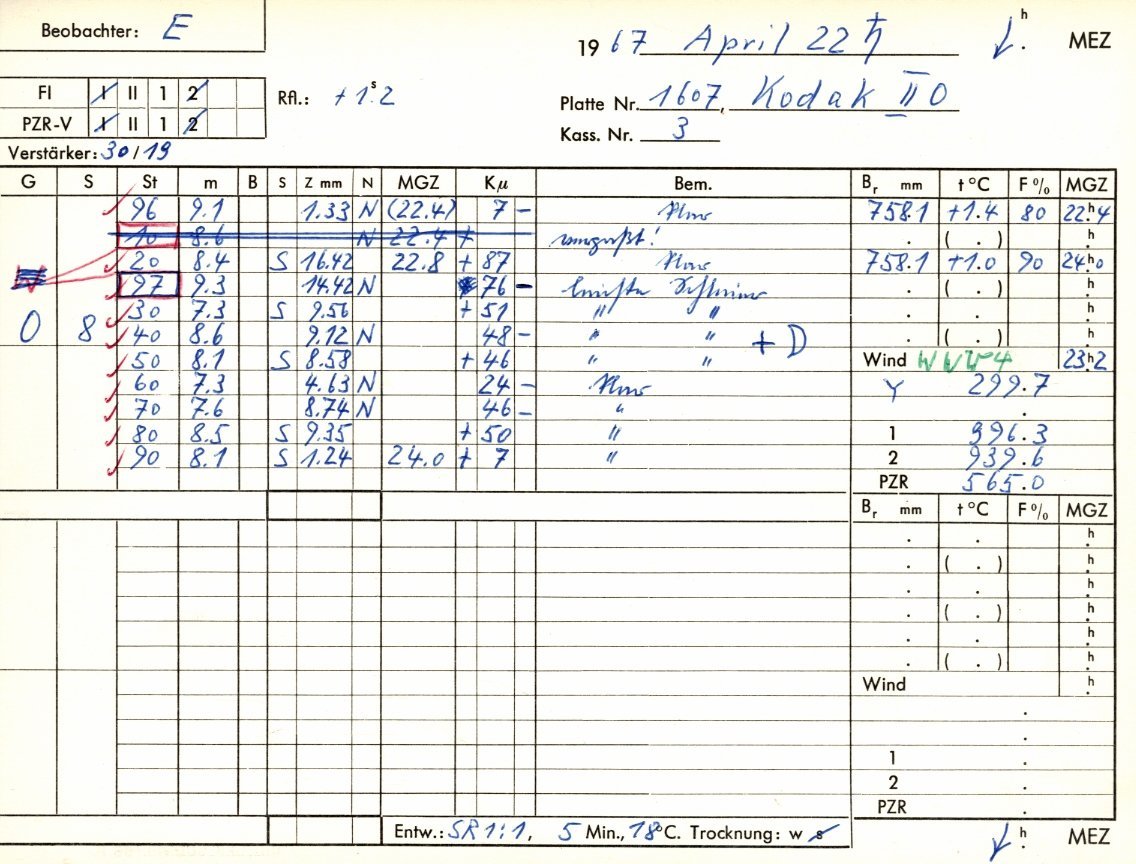 Beobachter: E
19 67 April 22 ♄ h . MEZ
FI I II 1 2
Rfl.: + 1ˢ.2
PZR-V I II 1 2
Platte Nr. 1607, Kodak II O
Kass. Nr. 3
Verstärker: 30/19
G S St m B S Z mm N MGZ Kμ Bem. Bᵣ mm t °C F % MGZ
96 9.1 1.33 N (22.4) 7 – klar 758.1 +1.4 80 22ʰ4
10 8.6 N 22.4 + . ( . ) h .
20 8.4 S 16.42 22.8 + 87 klar 758.1 +1.0 90 24ʰ0
97 9.3 14.42 N 76 – . ( . ) h .
30 7.3 S 9.56 + 51 " " . . h .
0 8 40 8.6 9.12 N 48 – " " + D . ( . ) h .
50 8.1 S 8.58 + 46 " " Wind WNW 4 23ʰ2
60 7.3 4.63 N 24 – klar Y 299.7
70 7.6 8.74 N 46 – " .
80 8.5 S 9.35 + 50 " 1 996.3
90 8.1 S 1.24 24.0 + 7 " 2 939.6
PZR 565.0
Bᵣ mm t °C F % MGZ
. . h .
. ( . ) h .
. . h .
. ( . ) h .
. . h .
. ( . ) h .
Wind h .
.
.
1 .
2 .
PZR .
Entw.: SR 1:1, 5 Min., 18°C. Trocknung: w s
h . MEZ